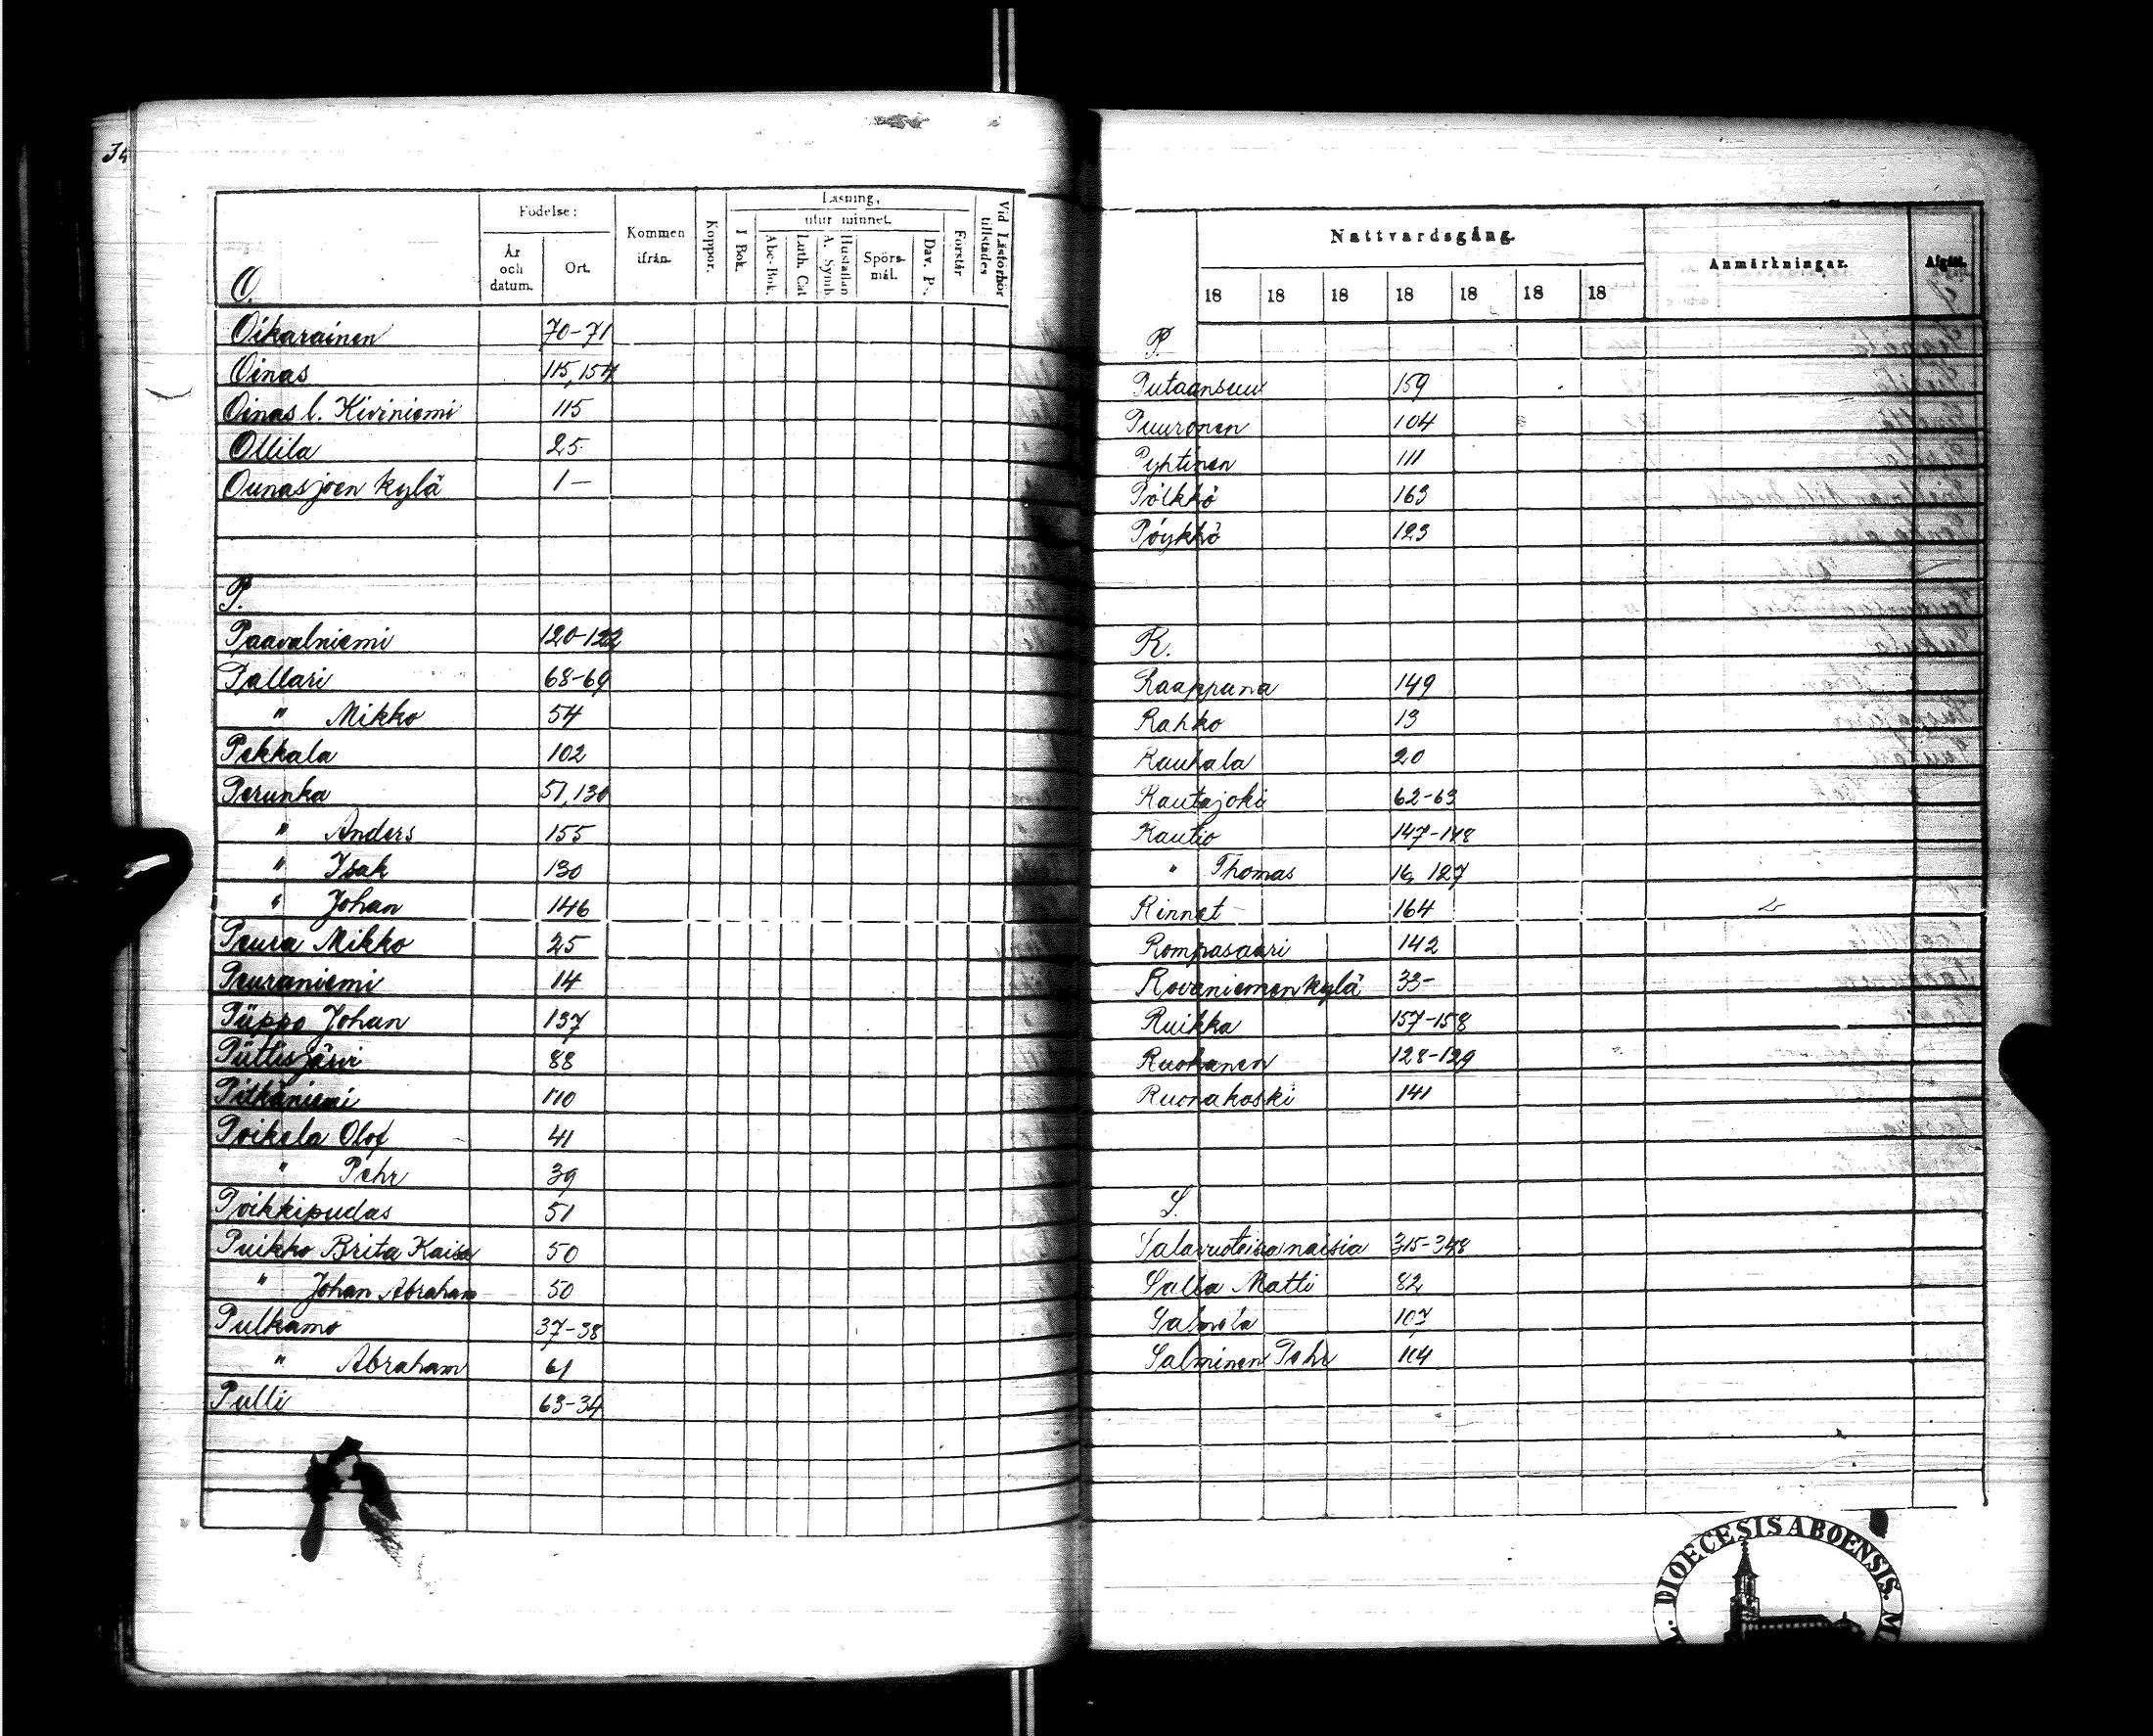 34
Födelse:
År och datum.
Ort.
Kommen ifrån.
Koppor.
Läsning,
utur minnet.
I Bok.
Abc-Bok.
Luth. Cat
Hustaflan A. Symb.
Spörsmål.
Dav. P.
Förstår
Vid Läsförhör tillstädes
O.
Oikarainen 70-71
Oinas 115,154
Oinas l. Kiviniemi 115
Ollila 25
Ounasjoen kylä 1-
P.
Paavalniemi 120-122
Pallari 68-69
" Mikko 54
Pekkala 102
Perunka 51,130
" Anders 155
" Isak 130
" Johan 146
Peura Mikko 25
Peuraniemi 14
Piippo Johan 137
Piittisjärvi 88
Pitkäniemi 110
Poikela Olof 41
" Pehr 39
Poikkipudas 51
Puikko Brita Kaisa 50
" Johan Abraham 50
Pulkamo 37-38
" Abraham 61
Pulli 63-34
Nattvardsgång.
18 18 18 18 18 18 18
Anmärkningar.
Afgått.
P.
Putaansuu 159
Puuronen 104
Pyhtinen 111
Pölkkö 163
Pöykkö 123
R.
Raappana 149
Rahko 13
Rauhala 20
Rautajoki 62-63
Rautio 147-148
" Thomas 16, 127
Rinnet 164
Rompasaari 142
Rovaniemen kylä 33-
Ruikka 157-158
Ruokanen 128-129
Ruonakoski 141
S.
Salavuoteisia naisia 315-348
Salla Matti 82
Salmela 107
Salminen Pehr 114
DIOECESIS ABOENSIS.